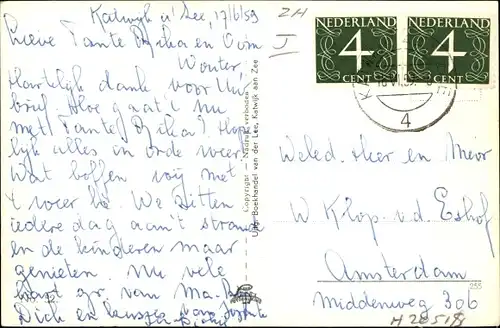 Katwijk a/ Zee, 17/6/59
Lieve Tante Mika en Oom
Wouter
Hartelijk dank voor Uw
brief. Hoe gaat 't nu
met Tante Mika? Hop
lijk alles in orde weer.
Wat boffen wij met
't weer hè. We zitten
iedere dag aan 't strand
en de kinderen maar
genieten. Nu vele
hart. gr. van
Dich en
ZH
I
NEDERLAND
4
CENT
NEDERLAND
4
CENT
4
Copyright - Nadruk verboden
Uitg. Boekhandel van der Lee, Katwijk aan Zee
Weled. Heer en Mevr
W Klop - v.d. Eshof
Amsterdam
255
Middenweg 306
H 28518